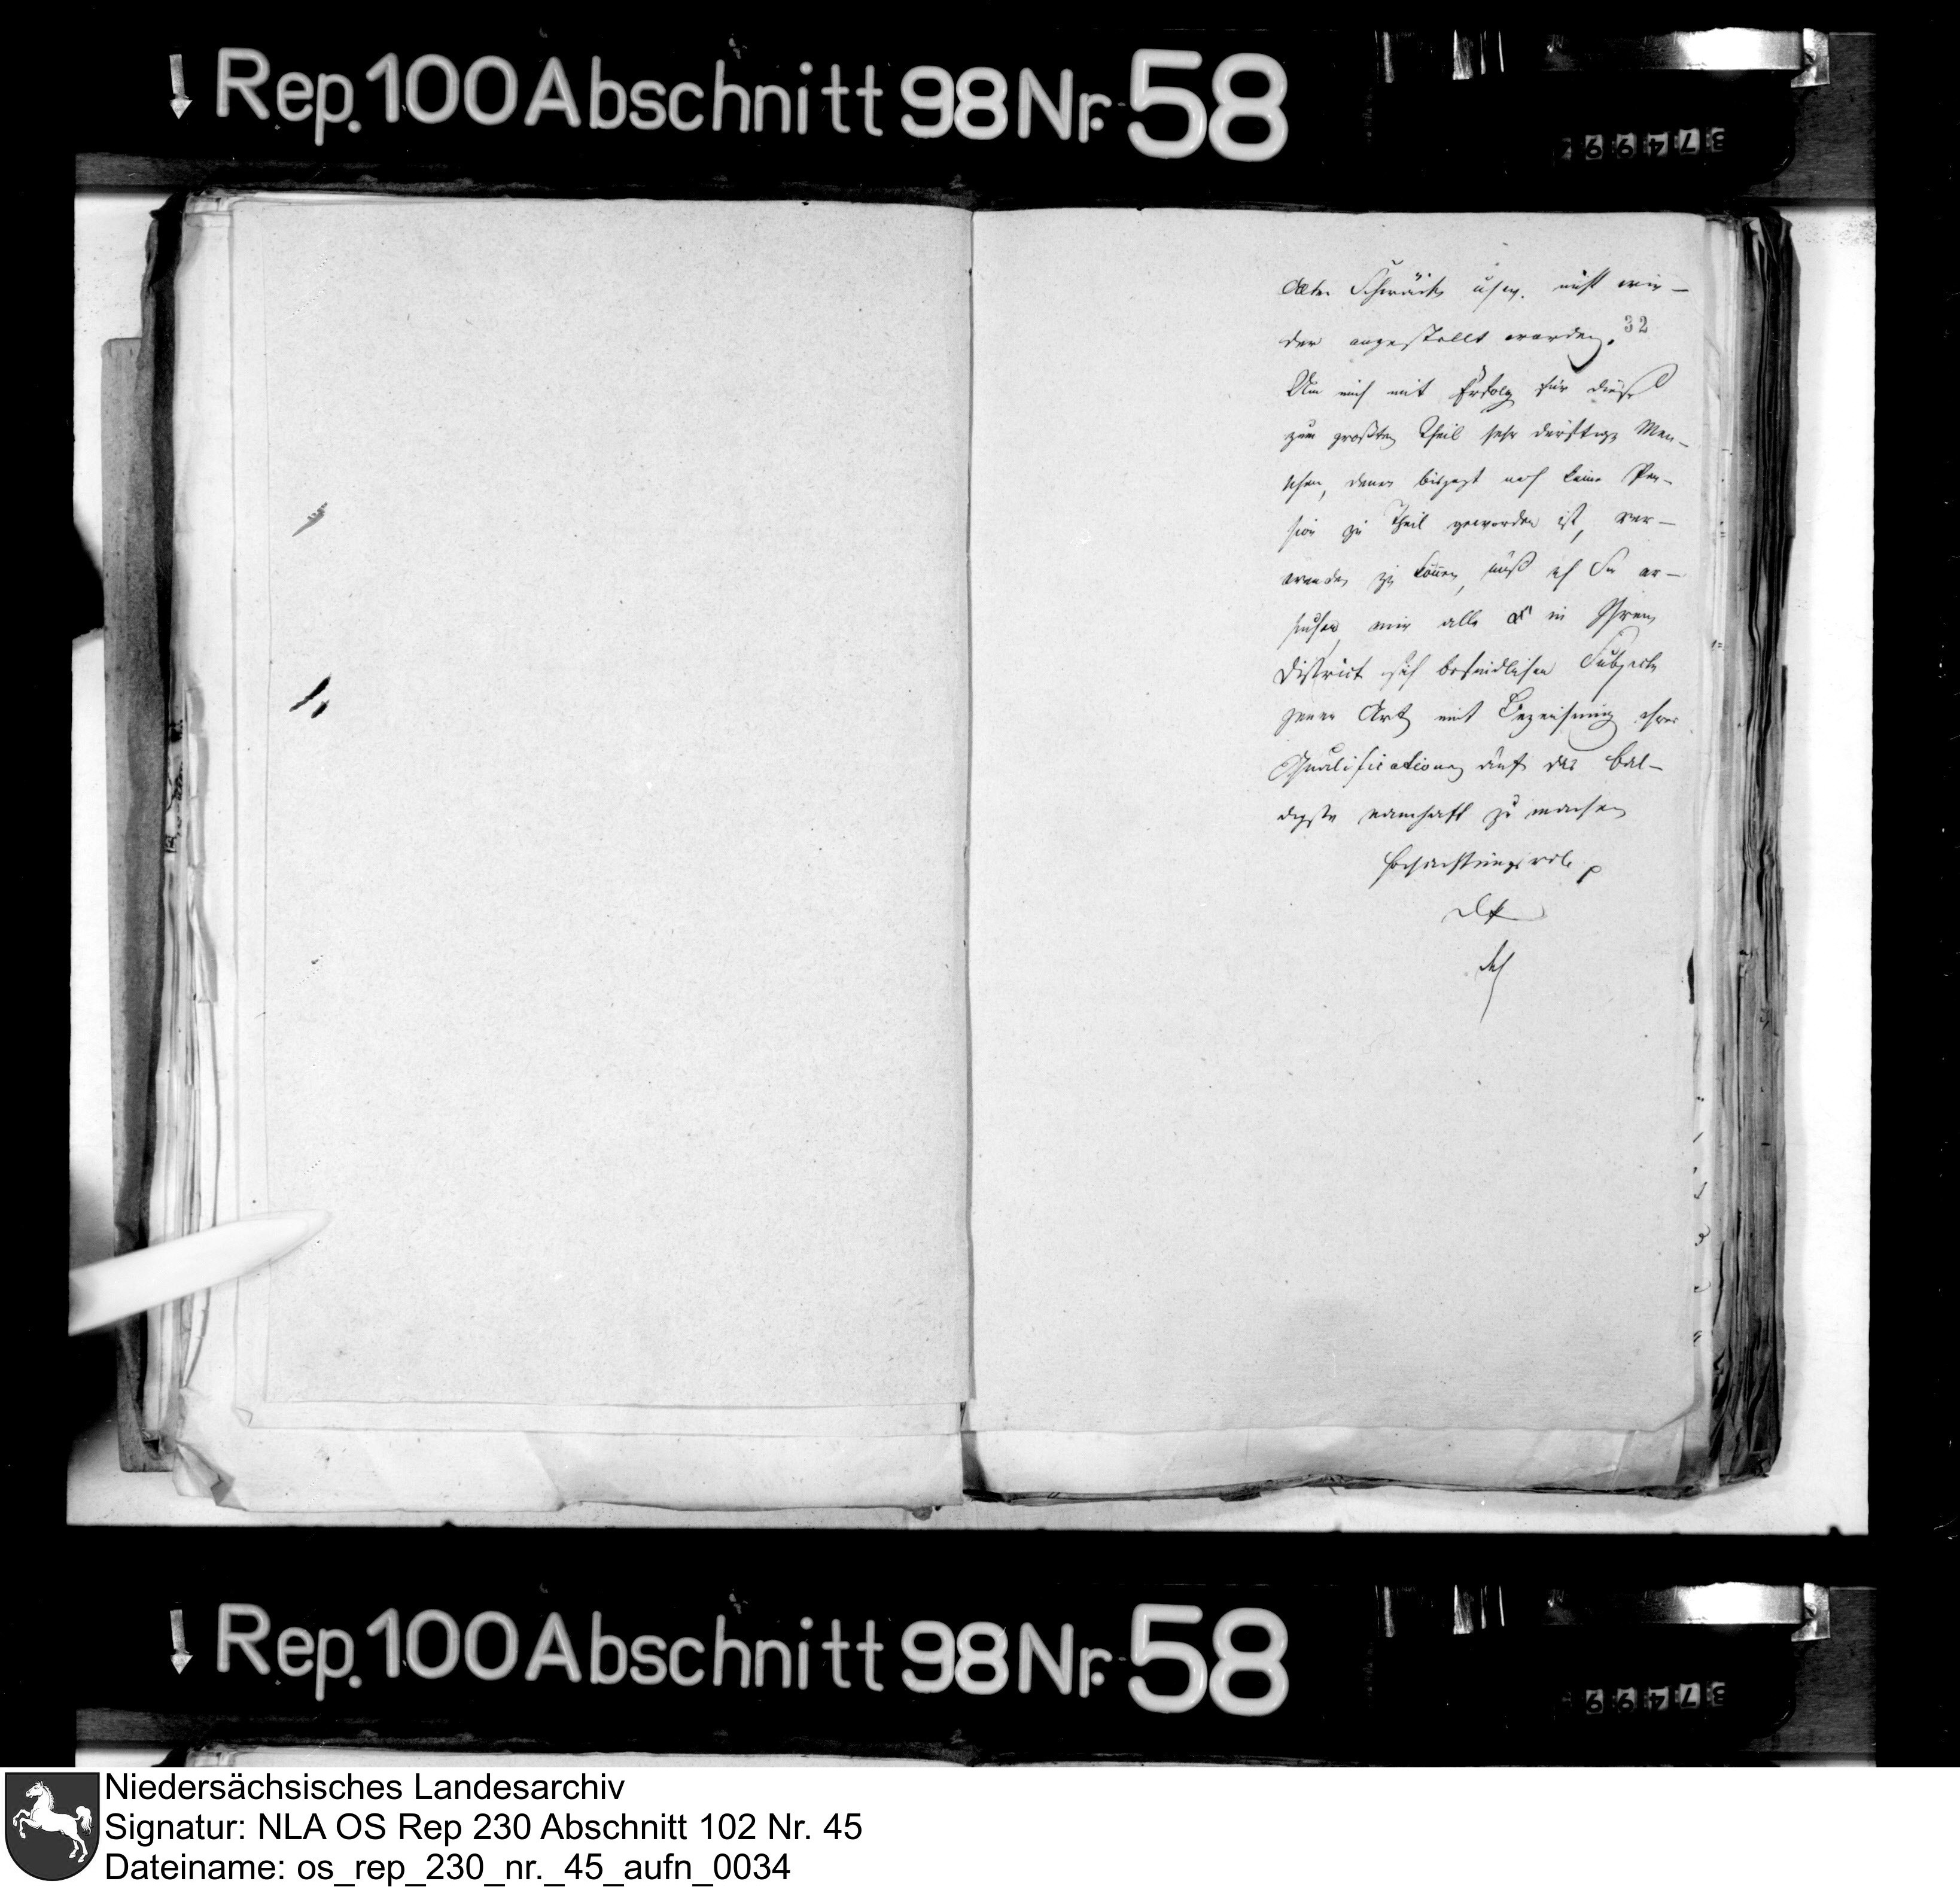 Rep. 100 Abschnitt 98 Nr. 58
37499
Alters Schwäche usw. nicht wie-
der angestellt worden.
32
Um mich mit Erfolg für diese
zum großten Theil sehr dürftige Men-
schen, denen bis jezt noch keine Pen-
sion zu Theil geworden ist, ver-
wenden zu können, muß ich Sie er-
suchen, mir alle in Ihrem
District sich befindlichen Subjecte
jener Art mit Bezeichnung ihrer
Qualificationen auf das bal-
digste namhaft zu machen
Hochachtungsvoll
Rep. 100 Abschnitt 98 Nr. 58
37499
Niedersächsisches Landesarchiv
Signatur: NLA OS Rep 230 Abschnitt 102 Nr. 45
Dateiname: os_rep_230_nr._45_aufn_0034